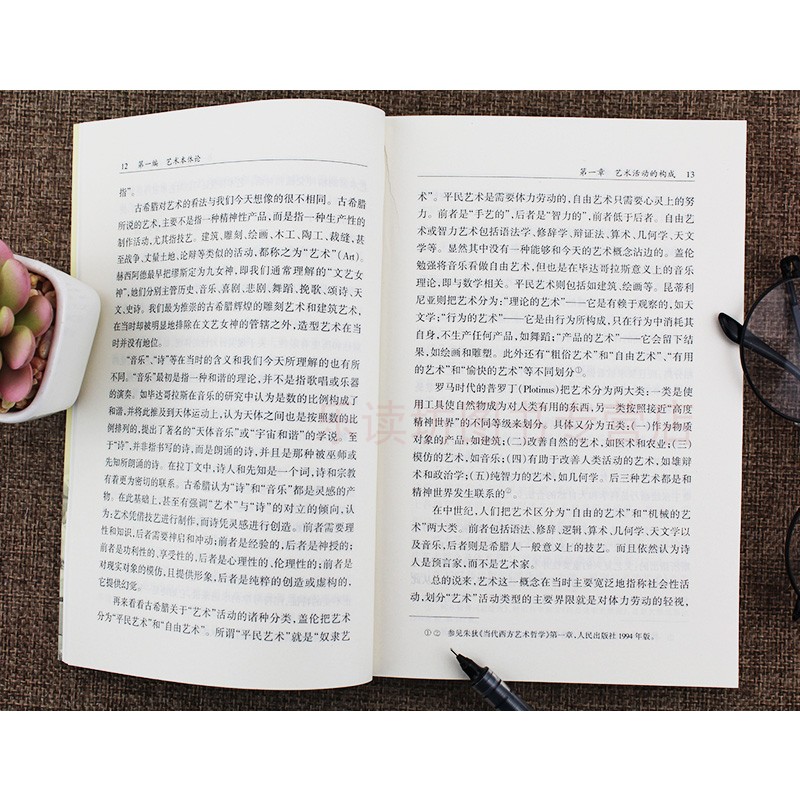 12 第一编 艺术本体论
指”。
古希腊对艺术的看法与我们今天想像的很不相同。古希腊
所说的艺术,主要不是指一种精神性产品,而是指一种生产性的
制作活动,尤其指技艺。建筑、雕刻、绘画、木工、陶工、裁缝,甚
至战争、丈量土地、论辩等类似的活动,都称之为“艺术”(Art)。
赫西阿德最早把缪斯定为九女神,即我们通常理解的“文艺女
神”,他们分别主管历史、音乐、喜剧、悲剧、舞蹈、挽歌、颂诗、天
文、史诗。我们最为推崇的古希腊辉煌的雕刻艺术和建筑艺术,
在当时却被明显地排除在文艺女神的管辖之外,造型艺术在当
时并没有地位。
“音乐”、“诗”等在当时的含义和我们今天所理解的也有所
不同。“音乐”最初是指一种和谐的理论,并不是指歌唱或乐器
的演奏。如毕达哥拉斯在音乐的研究中认为是数的比例构成了
和谐,并将此推及到天体运动上,认为天体之间也是按照数的比
例排列的,提出了著名的“天体音乐”或“宇宙和谐”的学说。至
于“诗”,并非指书写的诗,而是朗诵的诗,并且是那种被巫师或
先知所朗诵的诗。在拉丁文中,诗人和先知是一个词,诗和宗教
有着更为密切的联系。古希腊认为“诗”和“音乐”都是灵感的产
物。在此基础上,甚至有强调“艺术”与“诗”的对立的倾向,认
为:艺术凭借技艺进行制作,而诗凭灵感进行创造。前者需要理
性和知识,后者需要神启和冲动;前者是经验的,后者是神授的;
前者是功利性的、享受性的,后者是心理性的、伦理性的;前者是
对现实对象的模仿,且提供形象,后者是纯粹的创造或虚构的,
它提供幻觉。
再来看看古希腊关于“艺术”活动的诸种分类,盖伦把艺术
分为“平民艺术”和“自由艺术”。所谓“平民艺术”就是“奴隶艺
第一章 艺术活动的构成 13
术”。平民艺术是需要体力劳动的,自由艺术只需要心灵上的努
力。前者是“手艺的”,后者是“智力的”,前者低于后者。自由艺
术或智力艺术包括语法学、修辞学、辩证法、算术、几何学、天文
学等。显然其中没有一种能够和今天的艺术概念沾边的。盖伦
勉强将音乐看做自由艺术,但也是在毕达哥拉斯意义上的音乐
理论,即与数学相关。平民艺术则包括如建筑、绘画等。昆蒂利
尼亚则把艺术分为:“理论的艺术”——它是有赖于观察的,如天
文学;“行为的艺术”——它是由行为所构成,只在行为中消耗其
自身,不生产任何产品,如舞蹈;“产品的艺术”——它会留下结
果,如绘画和雕塑。此外还有“粗俗艺术”和“自由艺术”、“有用
的艺术”和“愉快的艺术”等不同划分①。
罗马时代的普罗丁(Plotinus)把艺术分为两大类:一类是使
用工具使自然物成为对人类有用的东西,另一类按照接近“高度
精神世界”的不同等级来划分。具体又分为五类:(一)作为物质
对象的产品,如建筑;(二)改善自然的艺术,如医术和农业;(三)
模仿的艺术,如音乐;(四)有助于改善人类活动的艺术,如雄辩
术和政治学;(五)纯智力的艺术,如几何学。后三种艺术都是和
精神世界发生联系的②。
在中世纪,人们把艺术区分为“自由的艺术”和“机械的艺
术”两大类。前者包括语法、修辞、逻辑、算术、几何学、天文学以
及音乐,后者则是希腊人一般意义上的技艺。而且依然认为诗
人是预言家,而不是艺术家。
总的说来,艺术这一概念在当时主要宽泛地指称社会性活
动,划分“艺术”活动类型的主要界限就是对体力劳动的轻视,
①② 参见朱狄《当代西方艺术哲学》第一章,人民出版社 1994 年版。